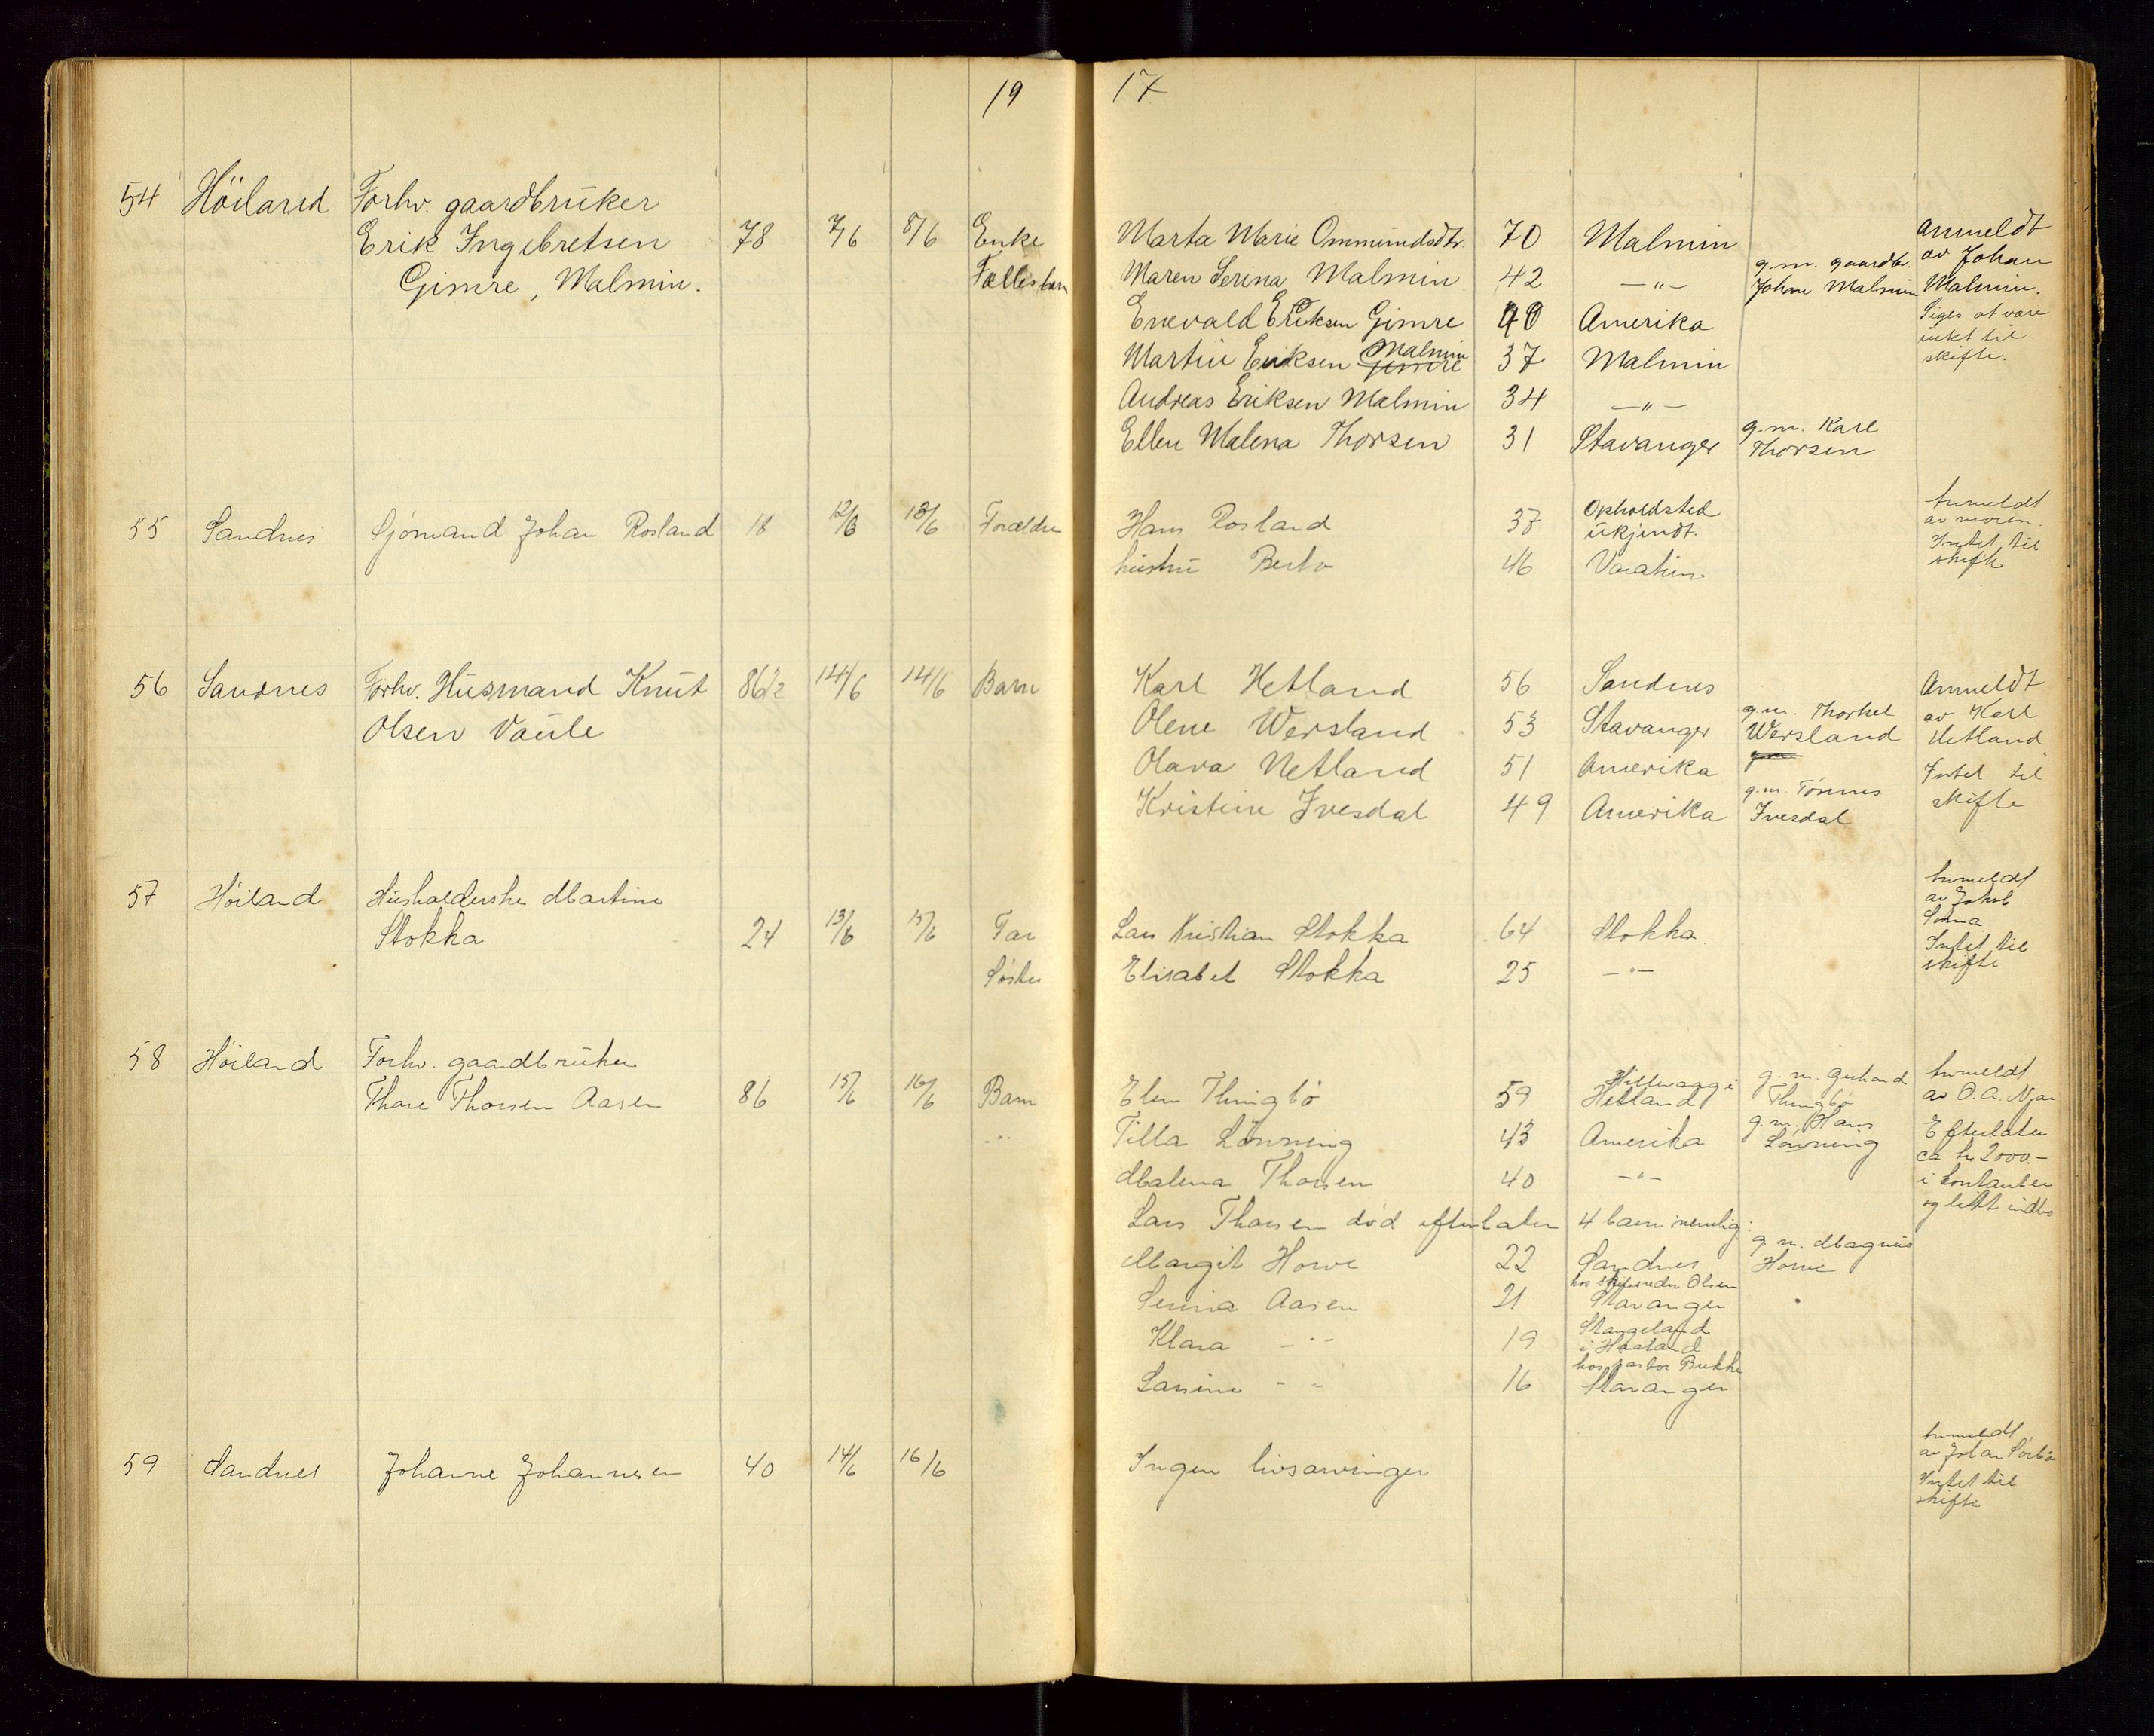 19 17
54 Höiland Forhv. gaardbrüker
Erik Ingebretsen 78 7/6 8/6 Enke Marta Marie Ommundsdtr. 70 Malmin Anmeldt
Gimre, Malmin. Fællesbarn Maren Serina Malmin 42 — " — g.m. gaardbr. av Johan
Johan Malmin Malmin.
Enevald Eriksen Gimre 40 Amerika Siges at være
intet til
Martin Eriksen Gimre Malmin 37 Malmin skifte.
Andreas Eriksen Malmin 34 — " —
Ellen Malena Thorsen 31 Stavanger g.m. Karl
Thorsen
55 Sandnes Sjömand Johan Rosland 18 12/6 13/6 Forældre Hans Rosland 37 Opholdsted Anmeldt
ukjendt. av moren.
hustru Berta 46 Varatun. Intet til
skifte
56 Sandnes Forhv. Husmand Knut 86 1/2 14/6 14/6 Barn Karl Hetland 56 Sandnes Anmeldt
Olsen Vaule Olene Wersland 53 Stavanger g.m. Thorkel av Karl
Wersland Hetland
Olava Hetland 51 Amerika gm Intet til
Kristine Ivesdal 49 Amerika g.m. Tönnes skifte
Ivesdal
57 Höiland Husholderske Martine Anmeldt
av Jakob
Stokka 24 13/6 15/6 Far Lars Kristian Stokka 64 Stokka
Intet til
Söster Elisabet Stokka 25 — " — skifte
58 Höiland Forhv. gaardbruker
Thore Thorsen Aasen 86 15/6 16/6 Barn Elen Thingbö 59 Hillevaag i g.m. Gerhard Anmeldt
Hetland Thingbö av O. A. Njaa
- " - Tilla Lönning 43 Amerika g.m. Hans Efterlater
Lönning ca kr 2000.-
Malena Thorsen 40 - " - i kontanter
Lars Thorsen död efterlater 4 barn nemlig: og litt indbo
Margit Hove 22 Sandnes g.m. Magnus
Hove
Serina Aasen 21 hos skibsreder Olsen
Stavanger
Klara - " - 19 Stangeland
i Haaland
Larsine - " - 16 hos pastor Brekke
Stavanger
59 Sandnes Johanne Johannesen 40 14/6 16/6 Ingen livsarvinger Anmeldt
av Johan Sörbö
Intet til
skifte